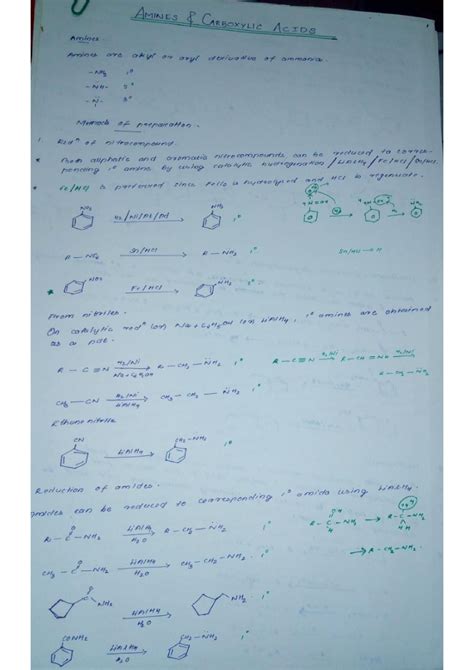 AMINES & CARBOXYLIC ACIDS
Amines
Amines are alkyl or aryl derivative of ammonia.
-NH2 1°
-NH- 2°
-N- 3°
Methods of preparation.
1. Redn of nitrocompound.
* Both aliphatic and aromatic nitrocompounds can be reduced to corres-
ponding 1° amines by using catalytic hydrogenation / LiAlH4 / Fe/HCl / Sn/HCl.
* Fe/HCl is preferred since FeCl2 is hydrolysed and HCl is regenerate.
NO2 H2/Ni/Pt/Pd NH2 1°
R-NO2 Sn/HCl R-NH2 1° Sn/HCl → H
* NO2 Fe/HCl NH2
From nitriles.
On catalytic redn (or) Na+C2H5OH (or) LiAlH4, 1° amines are obtained
as a pdt.
R-C≡N H2/Ni Na+C2H5OH R-CH2-NH2 1° R-C≡N H2/Ni R-CH=NH H2/Ni
R-CH2-NH2
CH3-CN H2/Ni LiAlH4 CH3-CH2-NH2 1°
Ethanenitrile
CN LiAlH4 CH2-NH2 1°
Reduction of amides.
amides can be reduced to corresponding 1° amide using LiAlH4.
R-C-NH2 LiAlH4 H2O R-CH2-NH2 1°
CH3-C-NH2 LiAlH4 H2O CH3-CH2-NH2 1° → R-CH2-NH2
C O NH2 LiAlH4 H2O NH2 1°
CONH2 LiAlH4 H2O CH2-NH2 1°